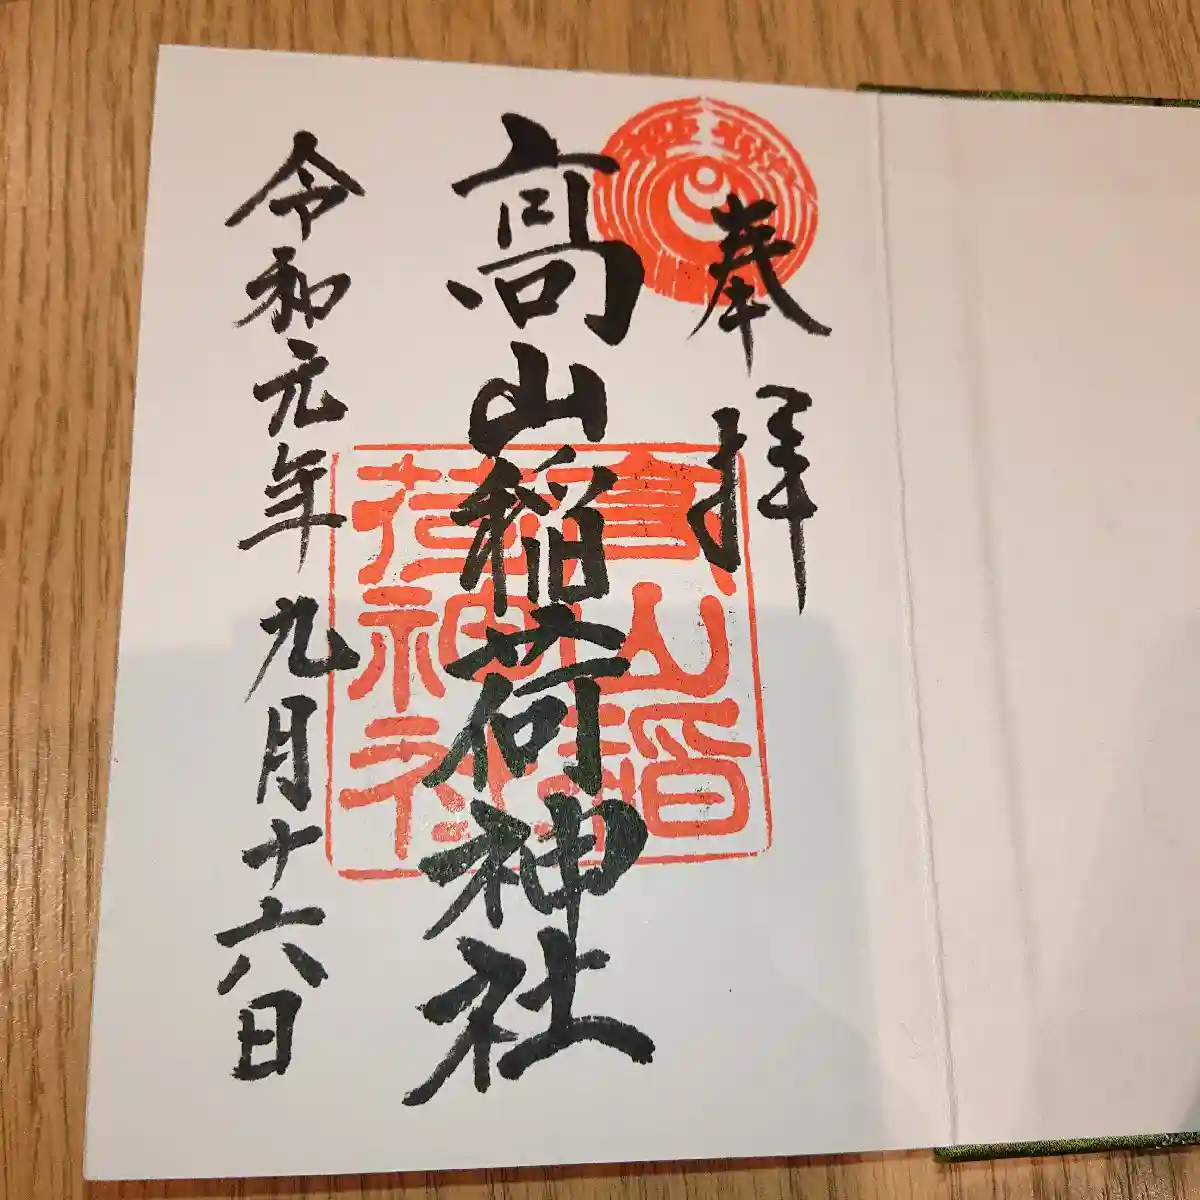 奉拝
高山稲荷神社
令和元年九月十六日
高山稲
荷神社